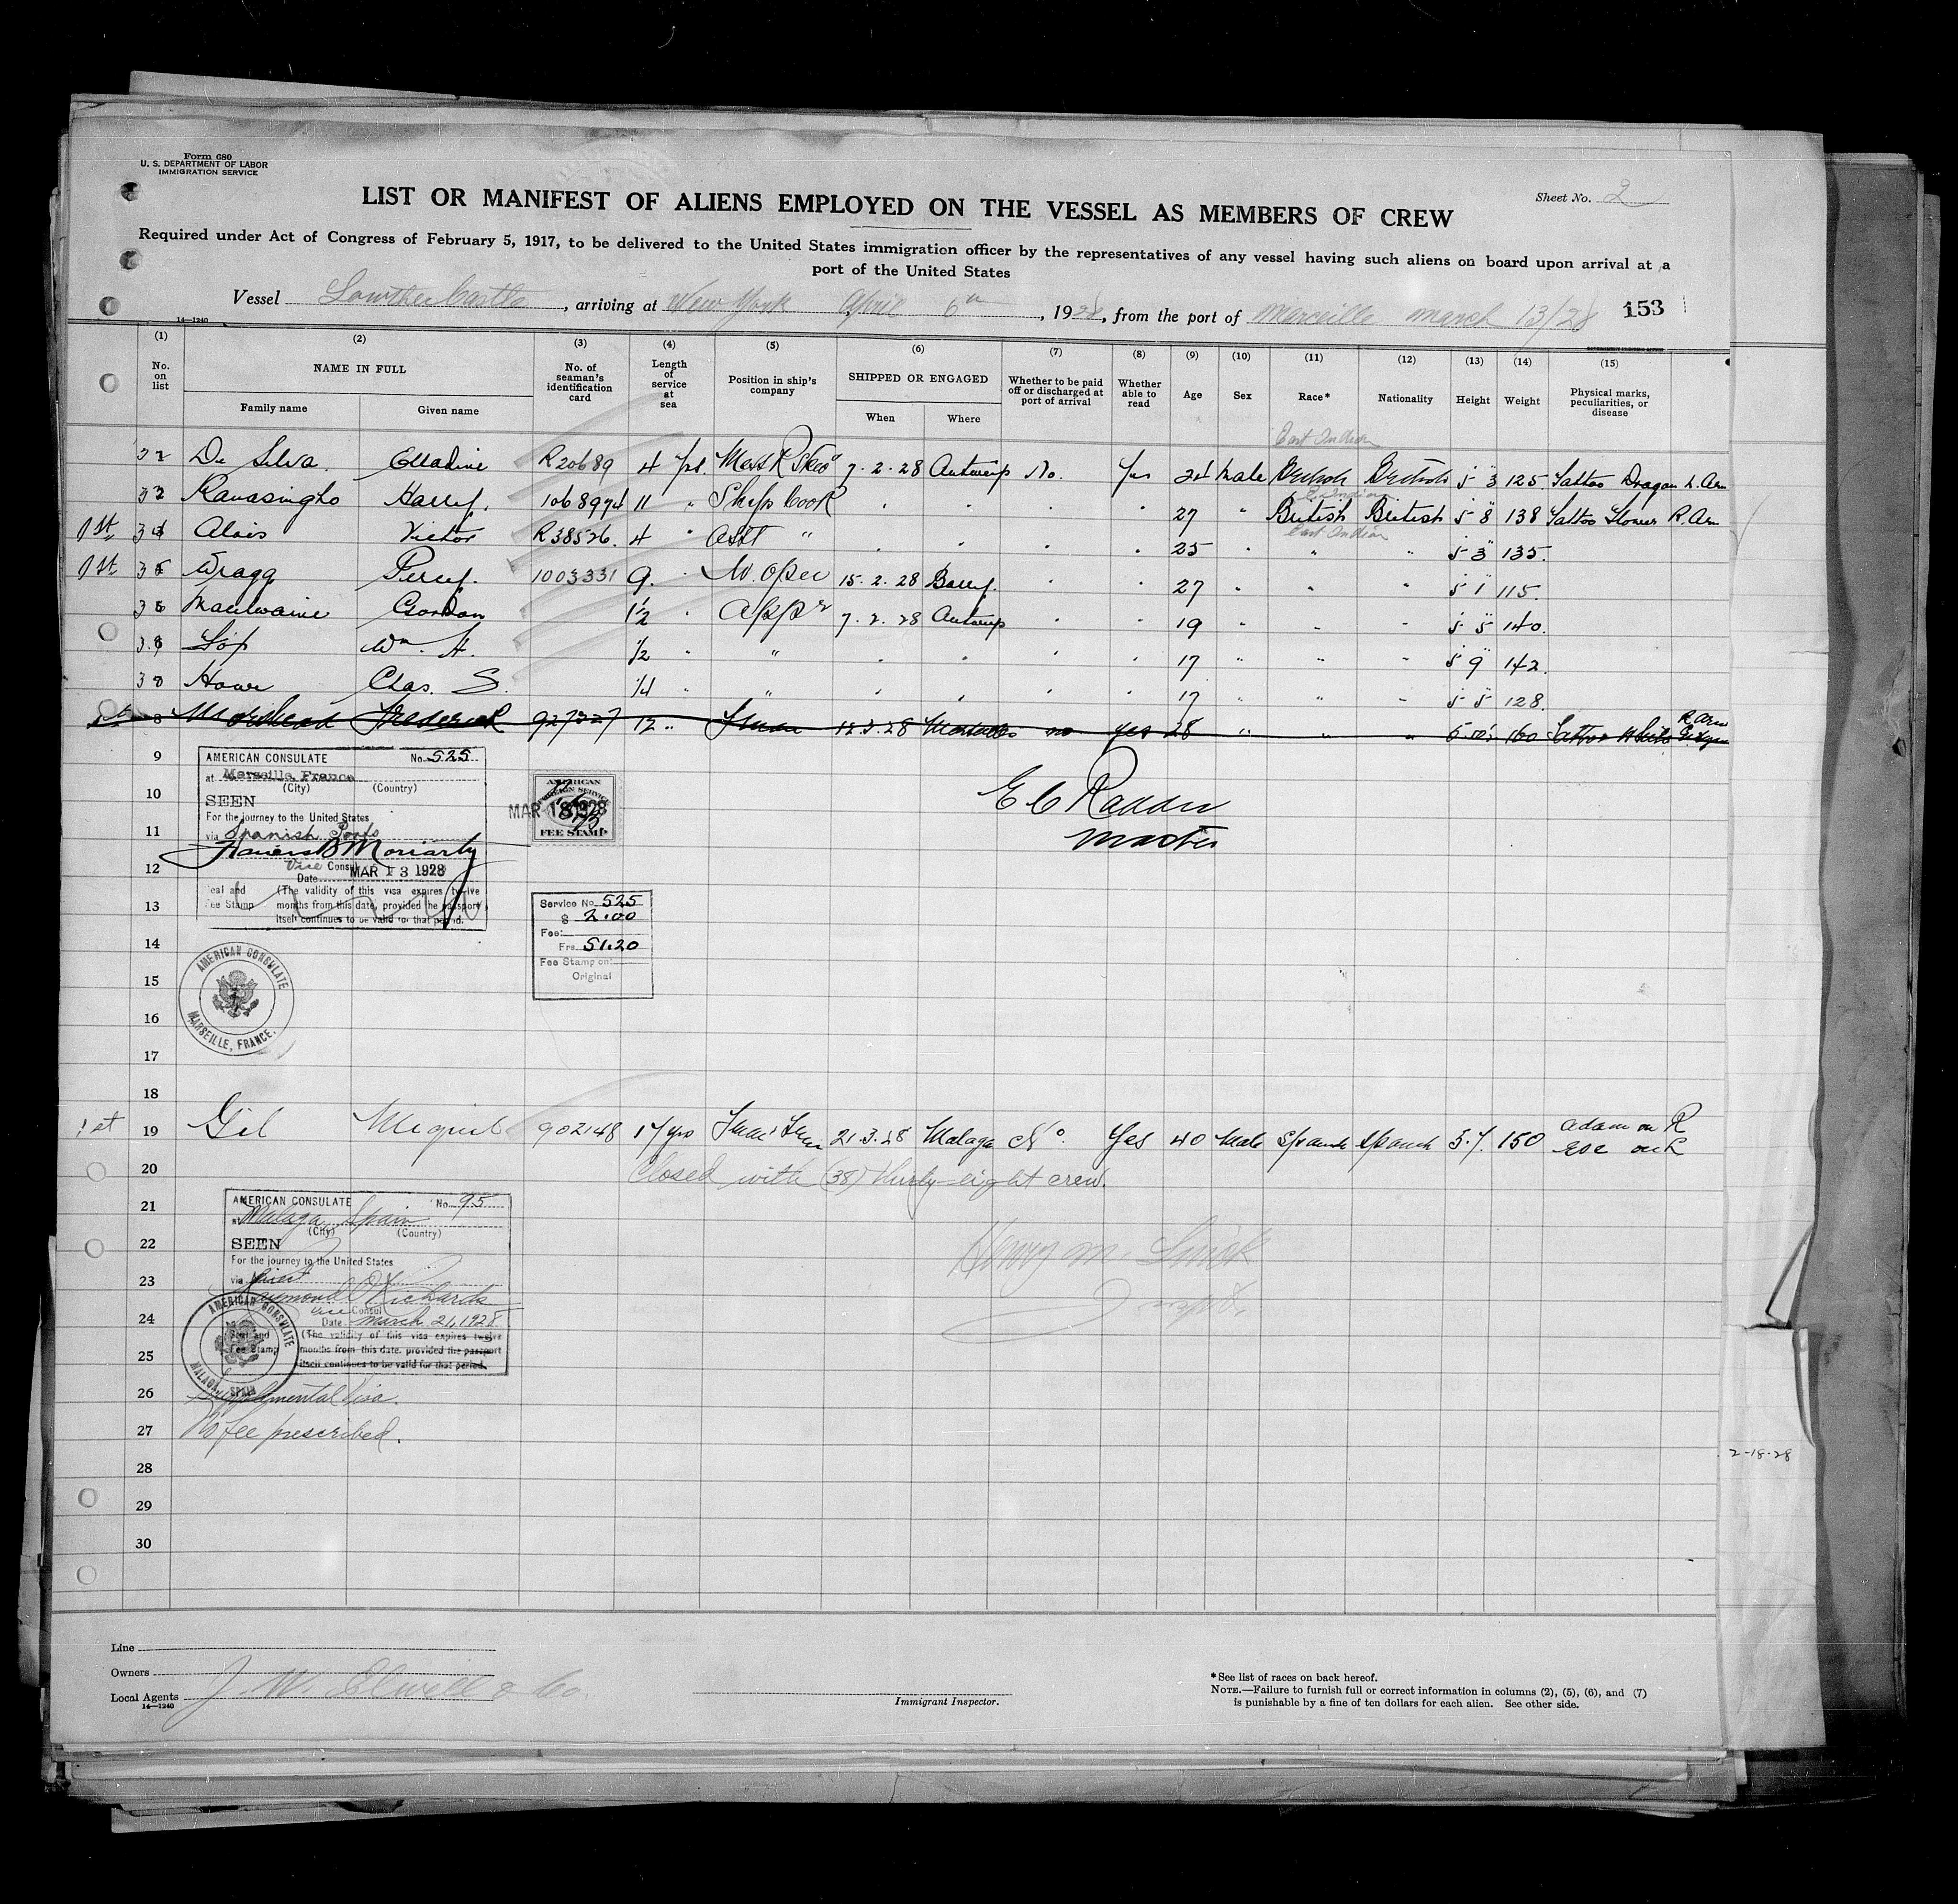 Form 680
U. S. DEPARTMENT OF LABOR
IMMIGRATION SERVICE
Sheet No. 2
LIST OR MANIFEST OF ALIENS EMPLOYED ON THE VESSEL AS MEMBERS OF CREW
Required under Act of Congress of February 5, 1917, to be delivered to the United States immigration officer by the representatives of any vessel having such aliens on board upon arrival at a
port of the United States
Vessel Lowther Castle, arriving at New York April 6th, 1928, from the port of Marseille march 13/28 153
14—1240
(1) (2) (3) (4) (5) (6) (7) (8) (9) (10) (11) (12) (13) (14) (15)
No. on list NAME IN FULL Family name Given name No. of seaman's identification card Length of service at sea Position in ship's company SHIPPED OR ENGAGED When Where Whether to be paid off or discharged at port of arrival Whether able to read Age Sex Race* Nationality Height Weight Physical marks, peculiarities, or disease
East Indian
De Silva R20689 4 yrs. 7.2.28 Antwerp No. yes 24 male British British 5 3" 125. Tattoo Dragon L. Arm
Ranasingho Harry. 1068974 11 " Ships Cook " " " " 27 " British British 5 8" 138 Tattoo Flower R. Arm
East Indian
1st Alois Victor R38526. 4 " Asst " " " " " 25 " " " 5 3" 135.
1st 35 Wragg Percy. 1003331 9. " W. Oper 15.2.28 Barry. " " 27 " " " 5 1" 115.
36 Gordon 1½ " Appr 7.2.28 Antwerp " " 19 " " " 5 5" 140.
Wm. H. ½ " " " " " " 17 " " " 5 9" 142.
38 Chas. S. ¼ " " " " " " 17 " " " 5 5" 128.
8 Morshead Frederick 927327 12 " 12.3.28 no yes 28 " " " 160 Tattoo R Arm
9
AMERICAN CONSULATE No. 525
at Marseille, France
(City) (Country)
SEEN
For the journey to the United States
via Spanish Ports
Francis B Moriarty
Vice Consul
Date MAR 13 1928
Seal and Fee Stamp (The validity of this visa expires twelve
months from this date, provided the passport
itself continues to be valid for that period.
AMERICAN
FOREIGN SERVICE
FEE STAMP
E C Radden
master
Service No. 525
$ 2.00
Fee:
Frs. 51.20
Fee Stamp on
Original
10
11
12
13
14
15
16
17
18
AMERICAN CONSULATE
MARSEILLE, FRANCE.
1st 19 Gil Miguel 902148 17 yrs 21.3.28 Malaga No. Yes 40 Male Spanish Spanish 5.7. 150 adam on R
Eve on L
20 Closed with (38) thirty-eight crew.
21
AMERICAN CONSULATE No. 95
at Malaga, Spain
(City) (Country)
SEEN
For the journey to the United States
via direct
Raymond Richards
Vice Consul
Date March 21, 1928.
Seal and Fee Stamp (The validity of this visa expires twelve
months from this date, provided the passport
itself continues to be valid for that period.
AMERICAN CONSULATE
MALAGA, SPAIN
Henry M.
22
23
24
25
26 Supplemental Visa.
27 No fee prescribed.
2-18-28
28
29
30
Line
Owners
Local Agents J. W. Elwell & Co
14—1240
Immigrant Inspector.
*See list of races on back hereof.
NOTE.—Failure to furnish full or correct information in columns (2), (5), (6), and (7)
is punishable by a fine of ten dollars for each alien. See other side.